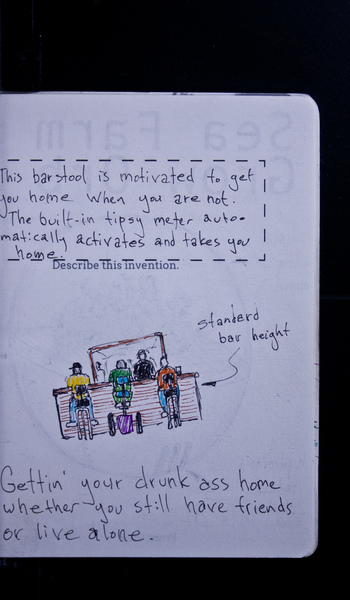 Sea Farm
This barstool is motivated to get
you home when you are not.
The built-in tipsy meter auto-
matically activates and takes you
home.
Describe this invention.
standard
bar height
Gettin' your drunk ass home
whether you still have friends
or live alone.